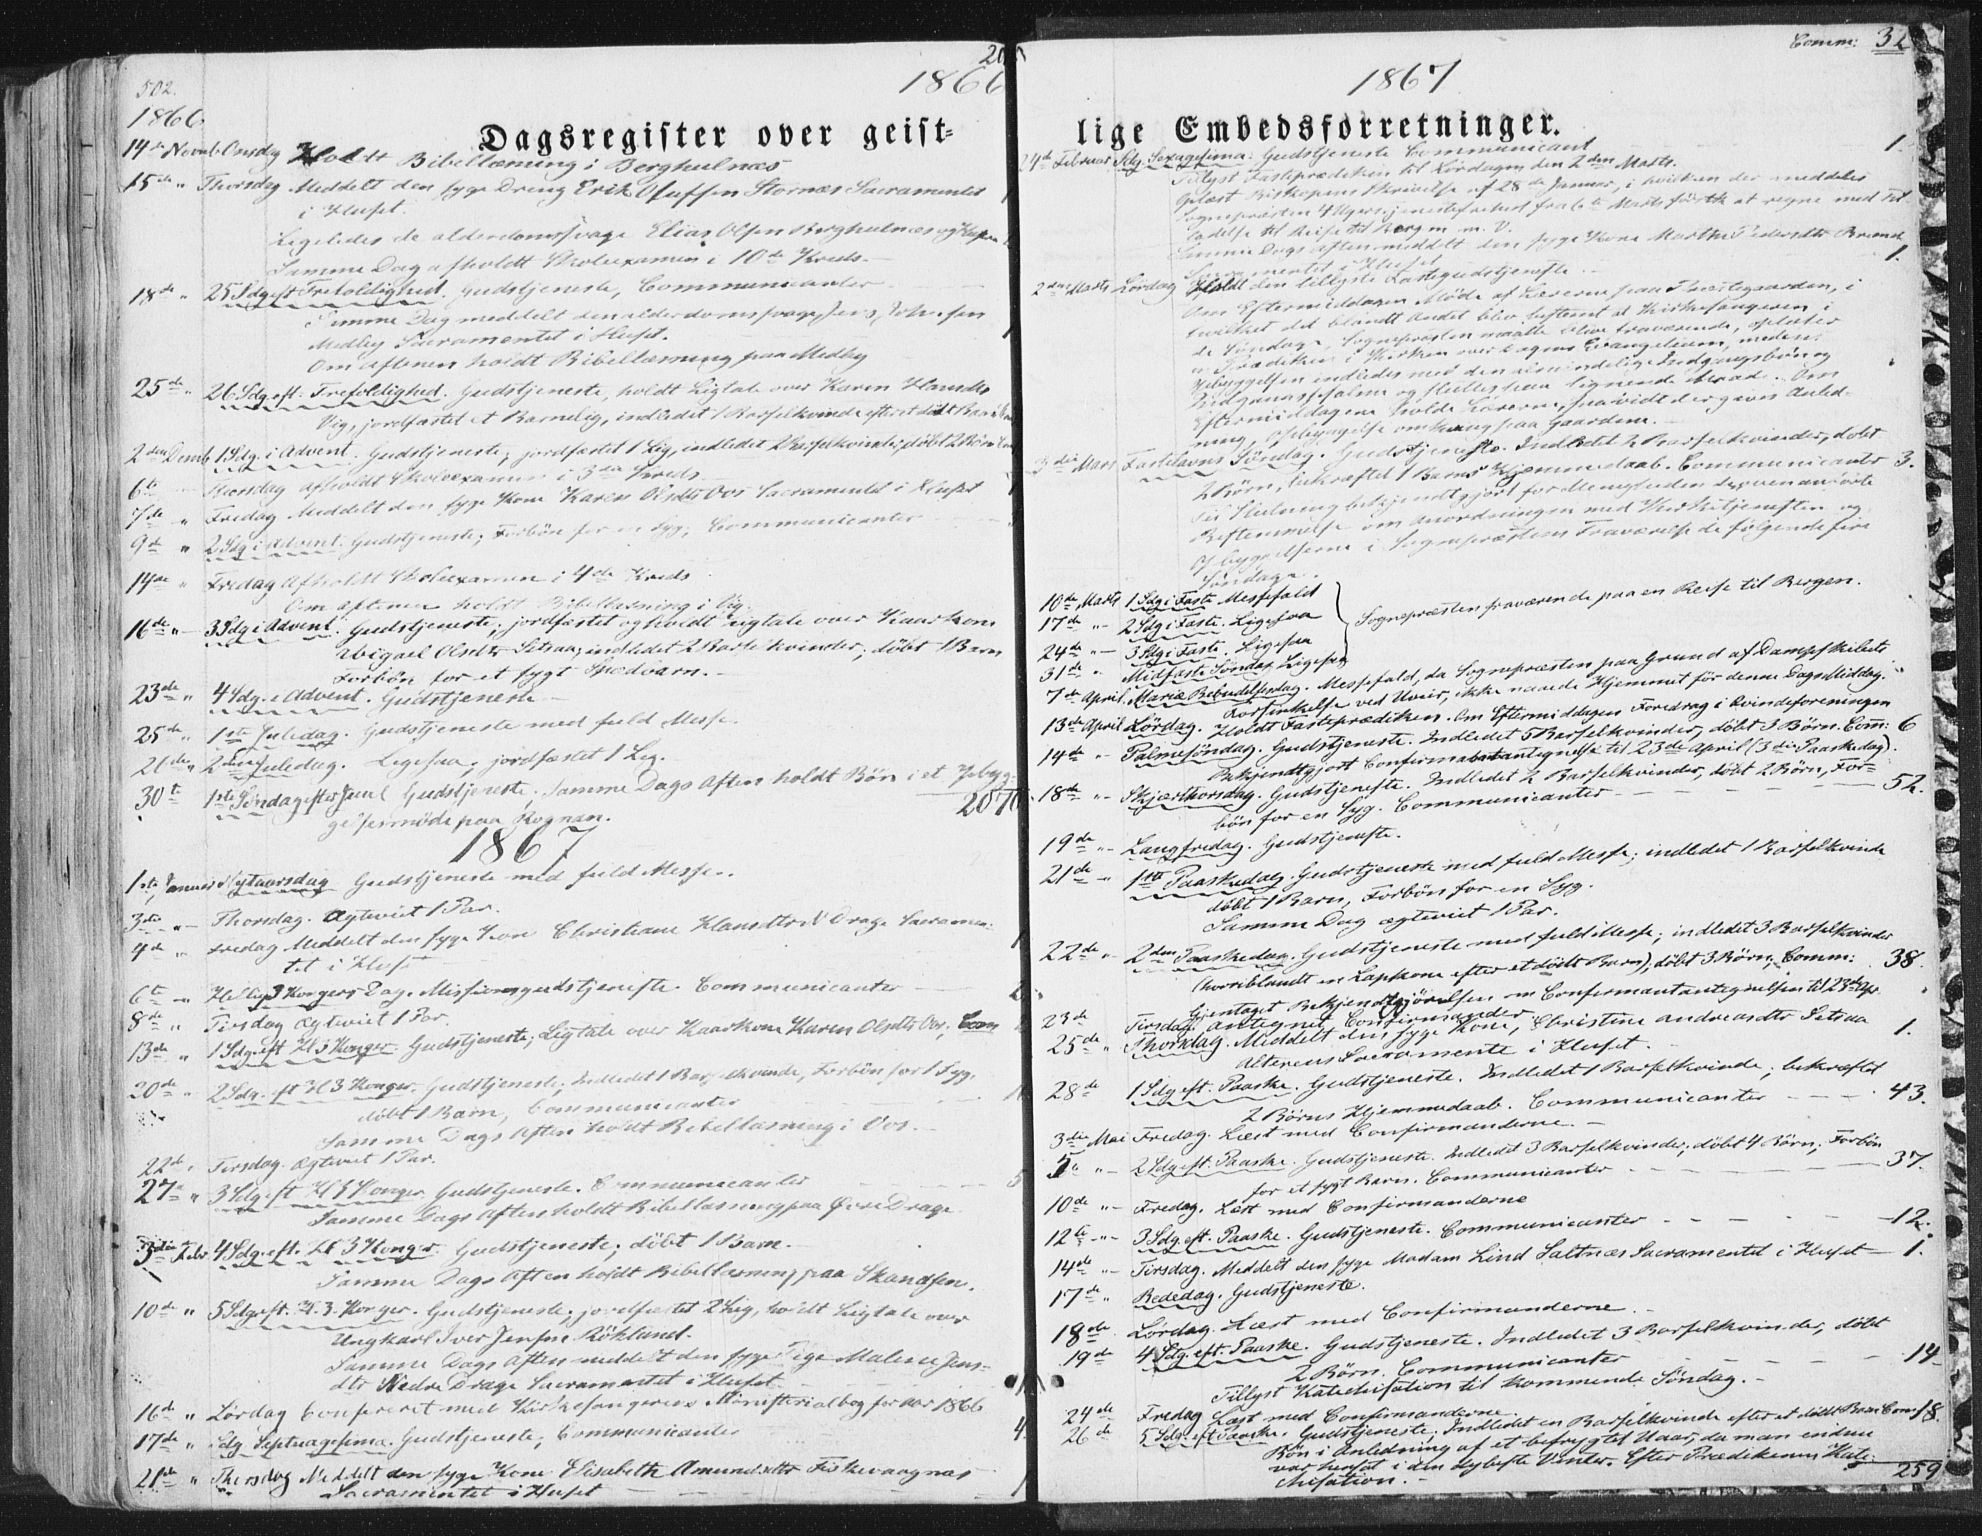 502.
1866
1866
Dagsregister over geist-
14de Novmb Onsdag Holdt Bibellæsning i Berghulnæs
15de " Thorsdag Meddelt den syge Dreng Erik Oluffsen Stornæs Sacramentet
i Huset.
Ligeledes de alderdomssvage Elias Olsen Berghulnæs og
Samme Dag afholdt Skoleexamen i 10de Kreds.
18de " 25 Sdg eft Trefoldighed. Gudstjeneste, Communicanter
Samme Dag meddelt den alderdomssvage Jens Johnsen
Medby Sacramentet i Huset.
Om aftenen holdt Bibellæsning paa Medby
25de " 26 Sdg. eft. Trefoldighed. Gudstjeneste, holdt Ligtale over Karen Hansdtr
Vig, jordfæstet et Barnelig, indledet 1 Barselkvinde efter et dødt Barn
2den Decmb 1 Sdg. i Advent. Gudstjeneste; jordfæstet 1 Lig, indledet 2 Barselkvinder; døbt 2 Børn
6te Thorsdag afholdt Skoleexamen i 3die Kreds
7de " Fredag Meddelt den syge Kone Karen Olsdtr Oos Sacramentet i Huset
9de " 2 Sdg i Advent. Gudstjeneste; Forbøn for en Syg; Communicanter
14de " Fredag Afholdt Skoleexamen i 4de Kreds
Om aftenen holdt Bibellæsning i Vig.
16de " 3 Sdg i Advent. Gudstjeneste; jordfæstet og holdt Ligtale over Kaarkone
Abigael Olsdtr Setsaa; indledet 2 Barselkvinder; døbt 1 Barn
Forbøn for et sygt Spædbarn.
23de " 4 Sdg. i Advent. Gudstjeneste
25de " 1ste Juledag. Gudstjeneste med fuld Messe.
26de " 2den Juledag. Ligesaa; jordfæstet 1 Lig.
30te 1ste Søndag efter Juul Gudstjeneste. Samme Dags Aften holdt Bøn i et Opbyg-
gelsesmøde paa Rognan. 2070
1867
1ste Januar Nytaarsdag Gudstjeneste med fuld Messe.
3die " Thorsdag. Ægteviet 1 Par.
4de " Fredag Meddelt den syge Kone Christiane Hansdtr N Drage Sacramen-
tet i Huset
6te " Hellig 3 Kongers Dag. Missionsgudstjeneste. Communicanter
8de " Tirsdag Ægteviet 1 Par.
13de " 1 Sdg. eft H 3 Konger. Gudstjeneste; Ligtale over Kaarkone Karen Olsdtr Oos; Com
20de " 2 Sdg. eft H 3 Konger. Gudstjeneste; Indledet 1 Barselkvinde, Forbøn for 1 Syg,
døbt 1 Barn, Communicanter
Samme Dags Aften holdt Bibellæsning i Oos.
22de " Tirsdag. Ægteviet 1 Par.
27de " 3 Sdg. eft H 3 Konger Gudstjeneste. Communicanter 5
Samme Dags Aften holdt Bibellæsning paa Øvre Drage
3die Febr 4 Sdg. eft. H 3 Konger. Gudstjeneste; døbt 1 Barn.
Samme Dags Aften holdt Bibellæsning paa Skandsen.
10de " 5 Sdg. eft. H. 3. Konger. Gudstjeneste; jordfæstet 2 Lig, holdt Ligtale over
Ungkarl Iver Jensen Røkland.
Samme Dags Aften meddelt den syge Pige Malene Jens-
dtr Nedre Drage Sacramentet i Huset
16de " Lørdag Confereret med Kirkesangeren Ministerialbog for Aar 1866
17de " Sdg Septuagesima. Gudstjeneste; Communicanter 4
21de " Thorsdag Meddelt den syge Kone Elisabeth Amundsdtr Fiskevaagnæs
Sacramentet i Huset
1867
Comm: 32
lige Embedsforretninger.
24de Februar Sdg Sexagesima. Gudstjeneste Communicant 1
Tillyst Fasteprædiken til Lørdagen den 2den Marts.
Oplæst Biskopens Skrivelse af 28de Januar, i hvilken der meddeles
Sognepræsten 4 Ugers Tjenestefrihed fra 6te Marts førstk at regne med Til-
ladelse til Reise til Bergen m. V.
Samme Dags Aften meddelt den syge Kone Marthe Pedersdtr
Sacramentet i Huset 1.
2den Marts Lørdag Holdt den tillyste Fastegudstjeneste
Om Eftermiddagen Møde af Lærerne paa Præstegaarden, i
hvilket det blandt Andet blev bestemt at Kirkesangeren i
de Søndage, Sognepræsten maatte blive fraværende, oplæser
en Prædiken i Kirken over Dagens Evangelium, medens
Opbyggelsen indledes med den almindelige Indgangsbøn og
Udgangspsalme og sluttes paa lignende Maade. Om
Eftermiddagene holde Lærerne, forsaavidt der gaves Anled-
ning, Opbyggelse omkring paa Gaardene.
3die Marts Fastelavns Søndag. Gudstjeneste. Indledet 2 Barselkvinder, døbt
2 Børn, bekræftet 1 Barns Hjemmedaab. Communicanter 3.
til bekjendtgjort for Menigheden den ovenanførte
Bestemmelse om Anordningen med Kirketjenesten og
Opbyggelserne i Sognepræstens Fraværelse de følgende fire
Søndage.
10de Marts 1 Sdg i Faste Messefald
17de " 2 Sdg i Faste. Ligesaa
24de " 3 Sdg i Faste. Ligesaa
31de " Midfaste Søndag Ligesaa
Sognepræsten fraværende paa en Reise til Bergen.
7de April. Mariæ Bebudelsesdag. Messefald, da Sognepræsten paa Grund af Dampskibets
Forsinkelse ved Uveir, ikke naaede Hjemmet før denne Dags Middag.
13de April Lørdag. Holdt Fasteprædiken. Om Eftermiddagen Foredrag i Qvindeforeningen
14de " Palmesøndag. Gudstjeneste. Indledet 5 Barselkvinder, døbt 3 Børn. Com: 6
Bekjendtgjort Confirmantantegnelse til 23de April (3die Paaskedag).
18de " Skjærthorsdag. Gudstjeneste. Indledet 2 Barselkvinder, døbt 2 Børn, For-
bøn for en Syg. Communicanter 52.
19de " Langfredag. Gudstjeneste.
21de " 1ste Paaskedag. Gudstjeneste med fuld Messe; indledet 1 Barselkvinde
døbt 1 Barn, Forbøn for en Syg.
Samme Dag ægteviet 1 Par.
22de " 2den Paaskedag. Gudstjeneste med fuld Messe; indledet 3 Barselkvinder
(hvoriblandt en Lapkone efter et dødt Barn), døbt 3 Børn; Comm: 38.
Gjentaget Bekjendtgjørelsen om Confirmantantegnelsen til 23de Apr
23de Tirsdag. Antegnet Confirmander
25de " Thorsdag. Meddelt den syge Kone, Christine Andreasdtr Setsaa
Alterens Sacramente i Huset. 1.
28de 1 Sdg eft. Paaske. Gudstjeneste. Indledet 1 Barselkvinde; bekræftet
2 Børns Hjemmedaab. Communicanter 43.
3die Mai Fredag. Læst med Confirmanderne.
5te " 2 Sdg eft. Paaske. Gudstjeneste. Indledet 3 Barselkvinder, døbt 4 Børn, Forbøn
for et sygt Barn. Communicanter 37.
10de " Fredag. Læst med Confirmanderne
12te " 3 Sdg. eft. Paaske. Gudstjeneste. Communicanter 12.
14de " Tirsdag. Meddelt den syge Madam Lind Saltnæs Sacramentet i Huset 1.
17de " Bededag. Gudstjeneste.
18de Lørdag. Læst med Confirmanderne.
19de 4 Sdg. eft. Paaske. Gudstjeneste. Indledet 3 Barselkvinder, døbt
2 Børn. Communicanter 14
Tillyst Katechisation til kommende Søndag.
24de Fredag Læst med Confirmanderne.
26de 5 Sdg eft Paaske. Gudstjeneste. Indledet en Barselkvinde efter et dødt Barn Com: 18
Bøn i Anledning af et befrygtet Uaar, da man endnu
var hensat i den dybeste Vinter. Efter Prædikenen Kate-
chisation. 259